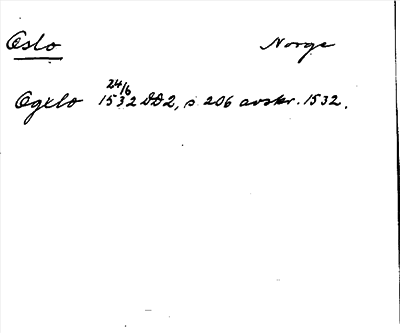 Oslo Norge
Ogslo 24/6 1532 DD2, s 206 avskr. 1532.